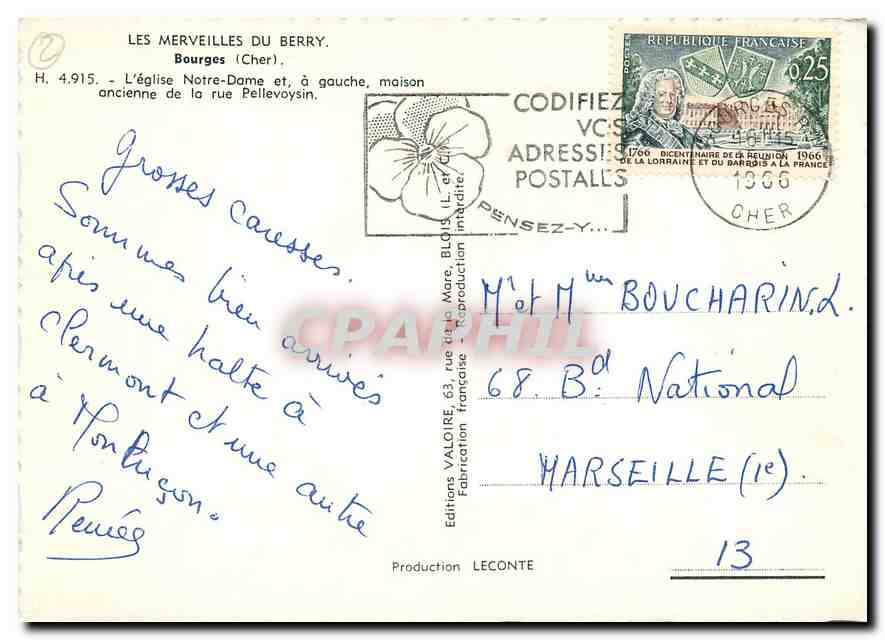 LES MERVEILLES DU BERRY.
Bourges (Cher).
H. 4.915. - L'église Notre-Dame et, à gauche, maison
ancienne de la rue Pellevoysin.
2
Grosses caresses.
Sommes bien arrivés
après une halte à
Clermont et une autre
à Montluçon.
Renée
CODIFIEZ
VOS
ADRESSES
POSTALES
PENSEZ-Y...
POSTES
REPUBLIQUE FRANÇAISE
0,25
1766 BICENTENAIRE DE LA REUNION 1966
DE LA LORRAINE ET DU BARROIS A LA FRANCE
BOURGES
1966
CHER
Editions VALOIRE, 63, rue de la Mare, BLOIS (L. et C.)
Fabrication française - Reproduction interdite.
CPAPHIL
Mr et Mme BOUCHARIN.L.
68. Bd National
MARSEILLE (1e).
13
Production LECONTE